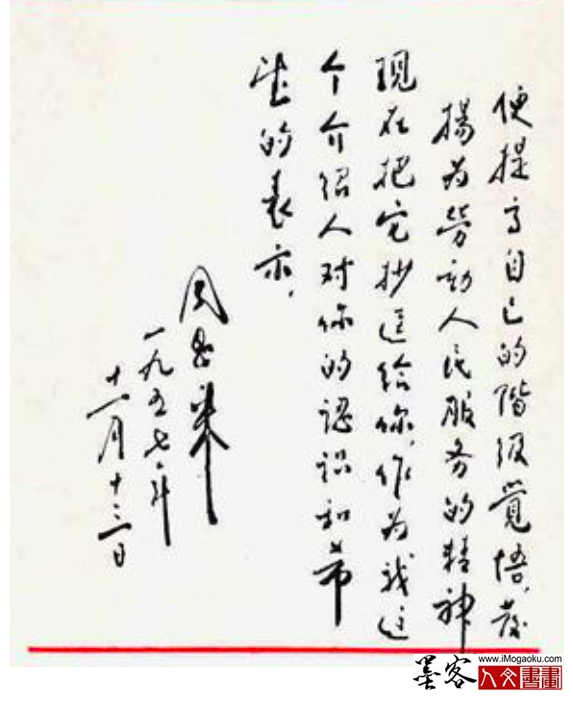 便提高自己的階级覺悟，發
揚为劳动人民服务的精神
现在把它抄送给你，作为我这
个介绍人对你的認识和希
望的表示，
周恩来
一九五七年
十一月十三日
墨客
www.iMogaoku.com
人文書畫